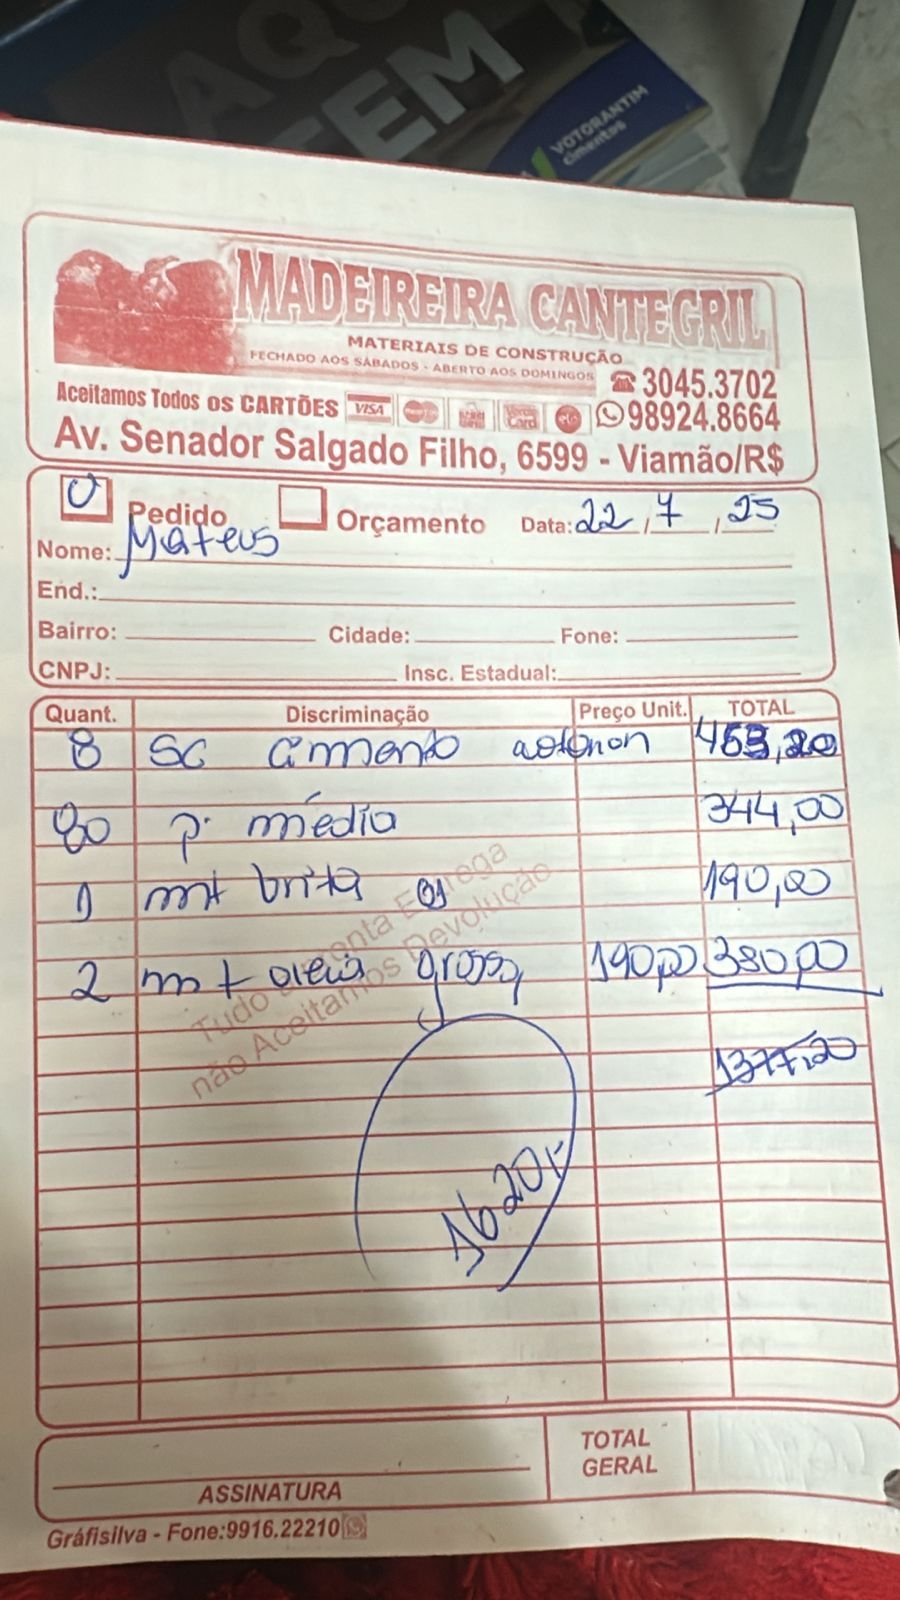 AQU
TEM
VOTORANTIM
cimentos
MADEIREIRA CANTEGRIL
MATERIAIS DE CONSTRUÇÃO
FECHADO AOS SÁBADOS - ABERTO AOS DOMINGOS
☎ 3045.3702
Aceitamos Todos os CARTÕES VISA 98924.8664
Av. Senador Salgado Filho, 6599 - Viamão/R$
Pedido Orçamento Data: 22 / 7 / 25
Nome: Mateus
End.:
Bairro: Cidade: Fone:
CNPJ: Insc. Estadual:
Quant. Discriminação Preço Unit. TOTAL
8 SC cimento ,20
80 p. média 344,00
1 mt brita 01 190,00
2 mt areia grossa 190,00 380,00
1377,20
1620,-
não Aceitamos Devolução
TOTAL
GERAL
ASSINATURA
Gráfisilva - Fone:9916.22210